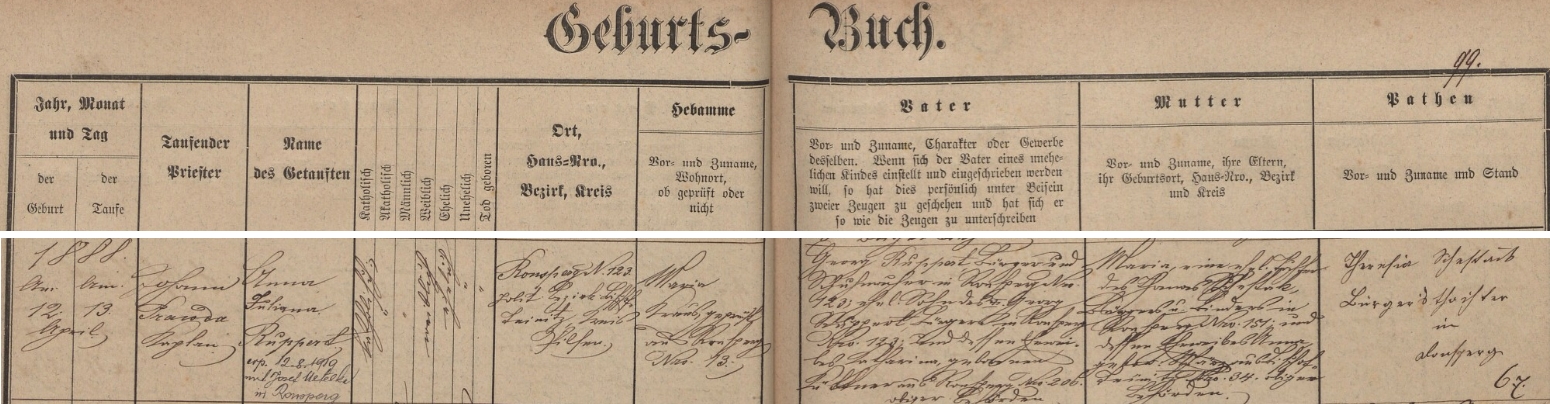 Geburts-
Buch.
99.
Jahr, Monat
und Tag
der
Geburt
der
Taufe
Taufender
Priester
Name
des Getauften
Katholisch
Akatholisch
Männlich
Weiblich
Ehelich
Unehelich
Tod geboren
Ort,
Haus=Nro.,
Bezirk, Kreis
Hebamme
Vor- und Zuname,
Wohnort,
ob geprüft oder
nicht
Vater
Vor- und Zuname, Charakter oder Gewerbe
desselben. Wenn sich der Vater eines unehe-
lichen Kindes einstellt und eingeschrieben werden
will, so hat dies persönlich unter Beisein
zweier Zeugen zu geschehen und hat sich er
so wie die Zeugen zu unterschreiben
Mutter
Vor- und Zuname, ihre Eltern,
ihr Geburtsort, Haus-Nro., Bezirk
und Kreis
Pathen
Vor- und Zuname und Stand
1888.
Am
12.
April
Am
13.
Johann
Kaplan
Anna
Juliana
Ruppert
cop. 12.8.1919
in Ronsperg
Ronsperg N. 123
polit. Bezirk
Teinitz, Kreis
Pilsen
Maria
Kraus, geprüft
aus Ronsperg
Nro. 13.
Georg Ruppert Bürger und
Schuhmacher in Ronsperg Nro.
123, ehl. Sohn des Georg
Ruppert Bürgers in Ronsperg
Nro. 123, und dessen Ehewei-
bes Katharina, geborenen
aus Ronsperg No. 206.
obiger Behörden
Maria, eine ehl. Tochter
des
Bürgers u. in
Ronsperg Nro. 151, und
dessen Eheweibes Anna
Nro. 34. obiger
Behörden.
Theresia
Bürgerstochter
in
Ronsperg
67.